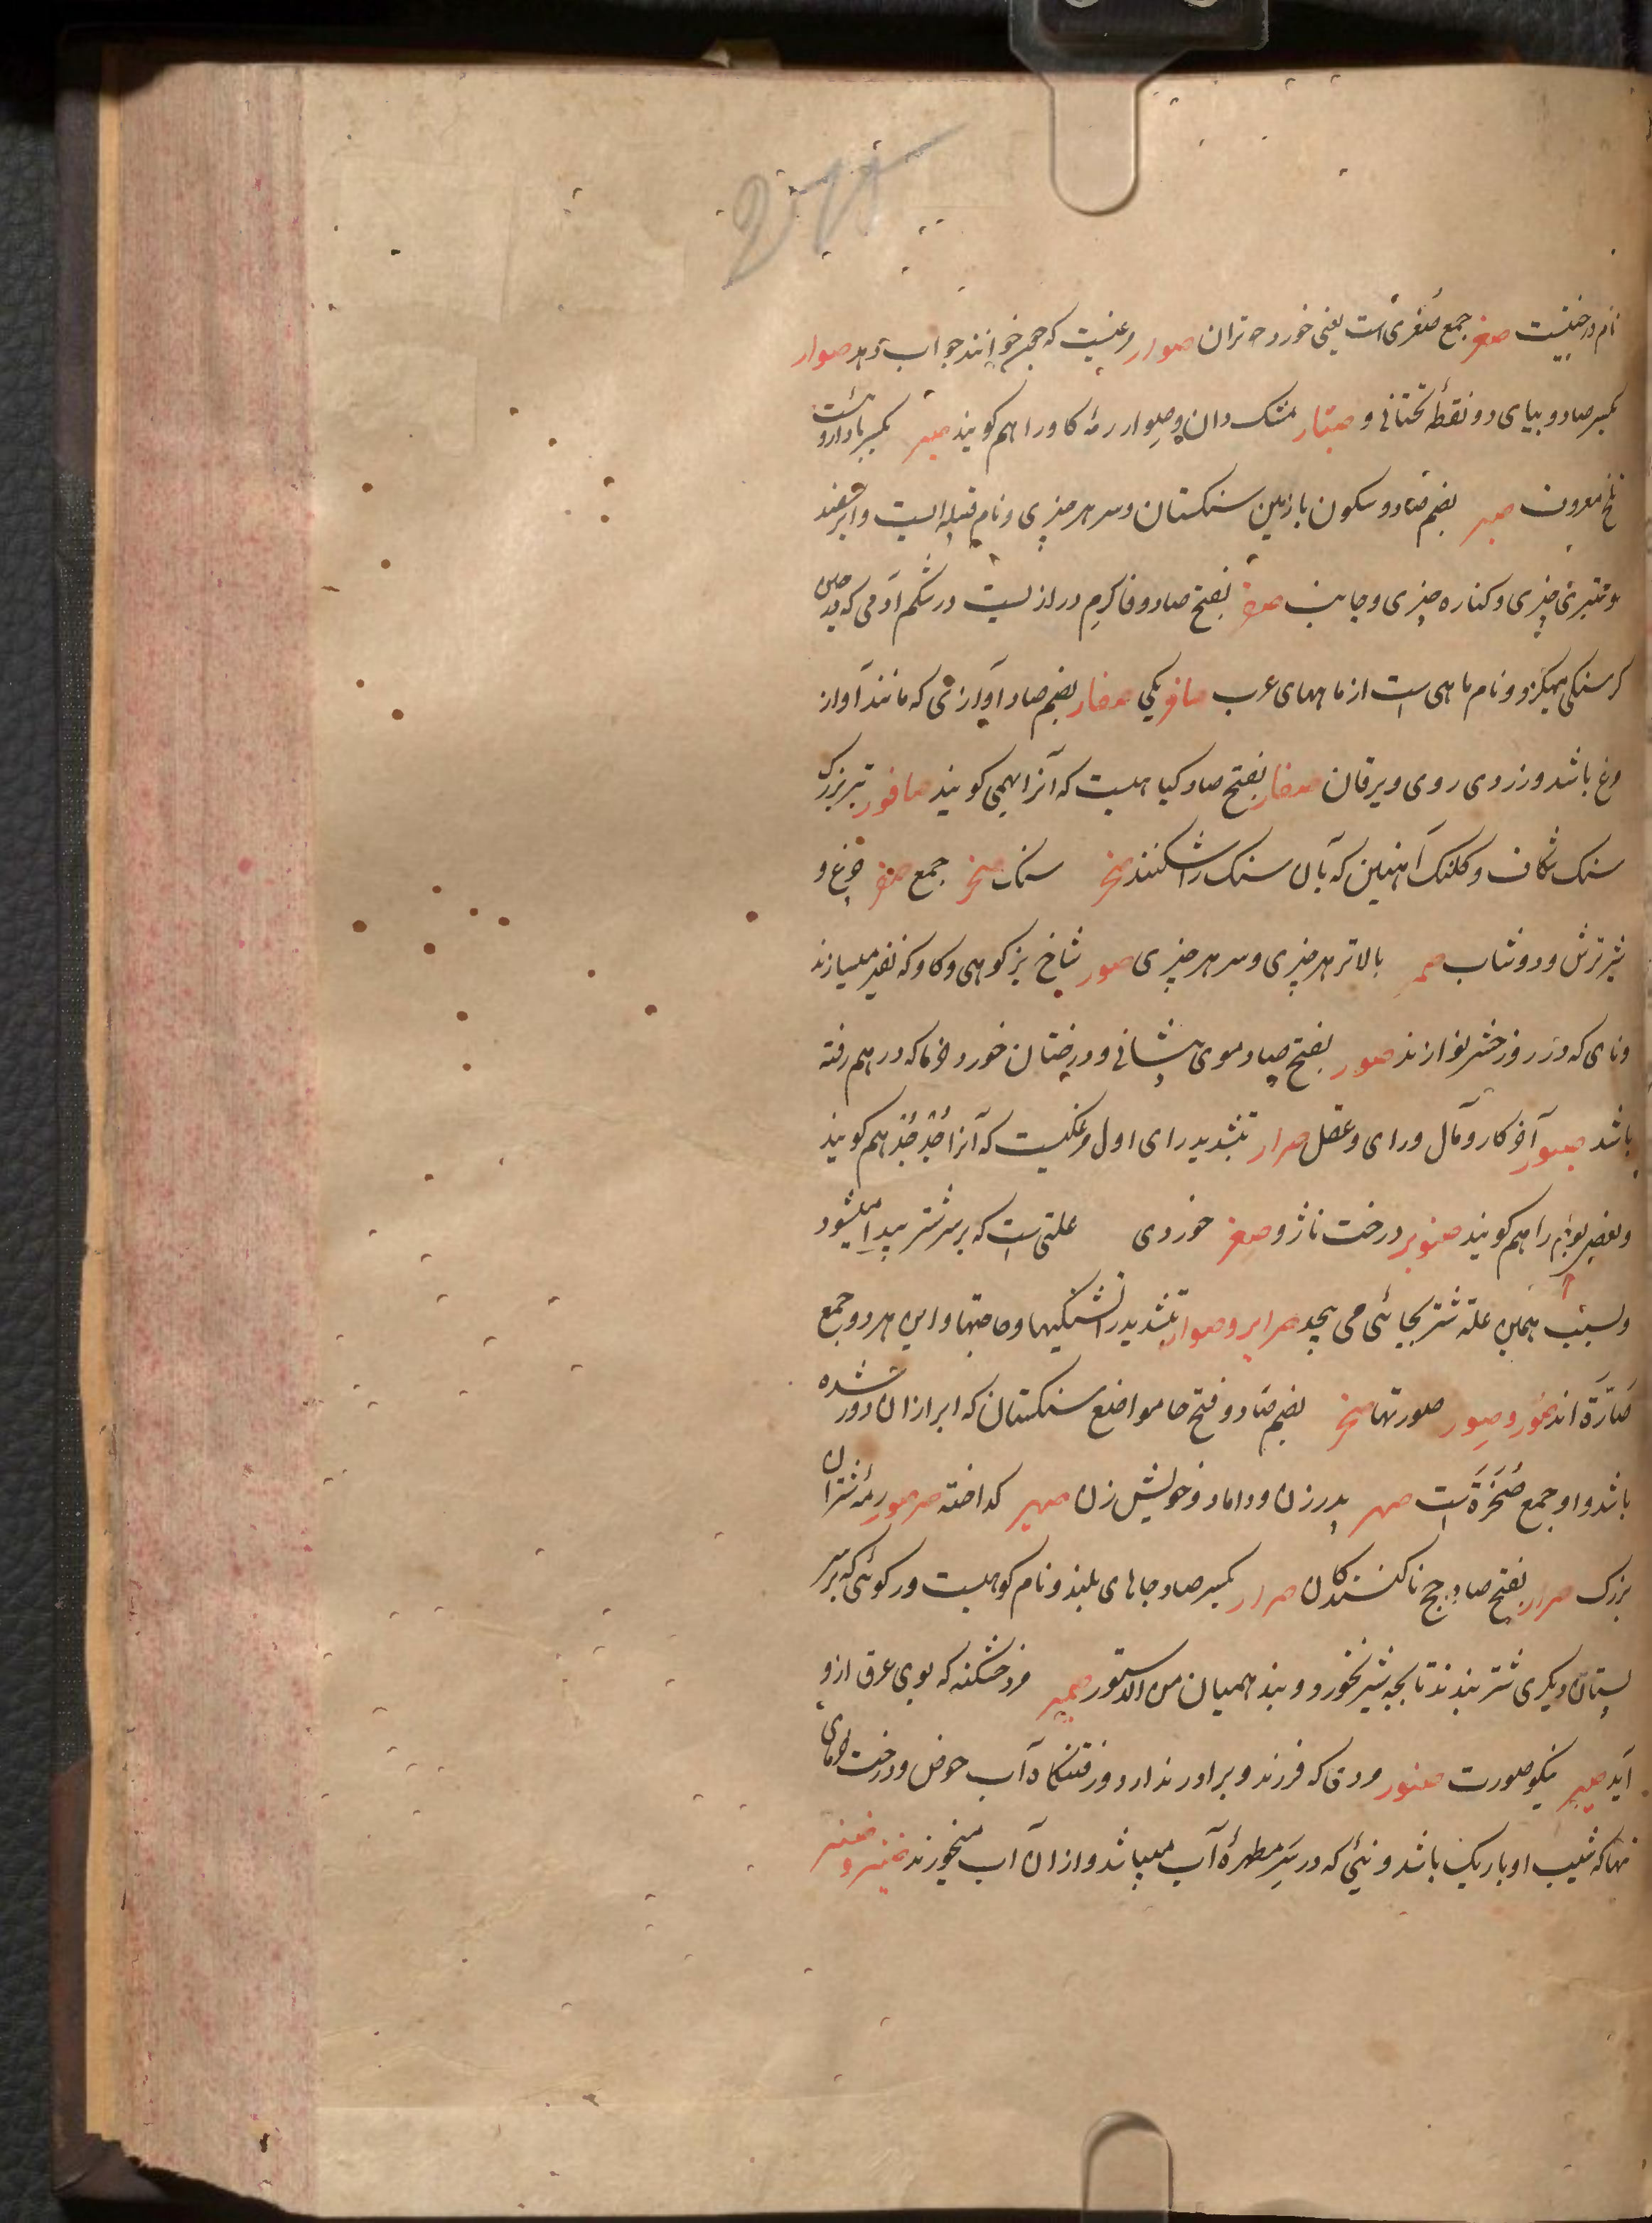 نام درختیست صغر جمع صُغری است یعنی خورد تران صوار مرغیست که چون خوانند جواب دهد صوار
بکسر صاد و بیای دو نقطهٔ تحتانی و صیار مشک دان و صوار رمهٔ کاو را هم کویند صبر بکسر با داروئیست
تلخ معروف صبر بضم صاد و سکون با زمین سنکستان و سر هر چیزی و نام قبیله ایست و ابر سفید
و تیزی چیزی و کناره چیزی و جانب صفر بفتح صاد و فا کرم درازیست در شکم آدمی که در حین
کرسنکی میکزد و نام ماهی است از ماههای عرب صافر یکی صفار بضم صاد آوازی که مانند آواز
وغ باشد و زردی روی و یرقان صفار بفتح صاد کیاهیست که آنرا بهمی کویند صاقور تبر بزرک
سنک شکاف و کلنک آهنین که بآن سنک را شکنند صخر سنک صخر جمع صقر چرغ و
شیر ترش و دوشاب صمر بالاتر هر چیزی و سر هر چیزی صور شاخ بز کوهی و کاو که نفیر میسازند
و نای که در روز حشر نوازند صور بفتح صاد موی پیشانی و درختان خورد خرما که در هم رفته
باشد صیور آخر کار و مآل و رای و عقل صرار بتشدید رای اول مرغکیست که آنرا جُدجُد هم کویند
و بعضی بوم را هم کویند صنوبر درخت ناژ و صغر خوردی علتی است که بر سر شتر پیدا میشود
و بسبب همین علة شتر بجائی می پیچد صرایر و صوار بتشدید را تشنکیها و حاجتها و این هر دو جمع
صَارّة اند صُوَر و صِوَر صورتها صخر بضم صاد و فتح خا مواضع سنکستان که ابر از ان دور شده
باشد و او جمع صُخَرَة است صهر پدر زن و داماد و خویش زن صهیر کداخته صرصور رمهٔ شتران
بزرک صرار بفتح صاد حج ناکنندکان صرار بکسر صاد جاهای بلند و نام کوهیست و رکوئی که بر سر
پستان دیکری شتر بندند تا بچه شیر نخورد و بند همیان من الدستور صمیر مرد خشکنه که بوی عرق ازو
آید صیر نیکو صورت صنبور مردی که فرزند و برادر ندارد و رفتنکاه آب حوض و درخت خرمای
تنها که شیب او باریک باشد و نیئی که در سر مطهرهٔ آب میباشد و از ان آب میخورند صنبر و صنبر